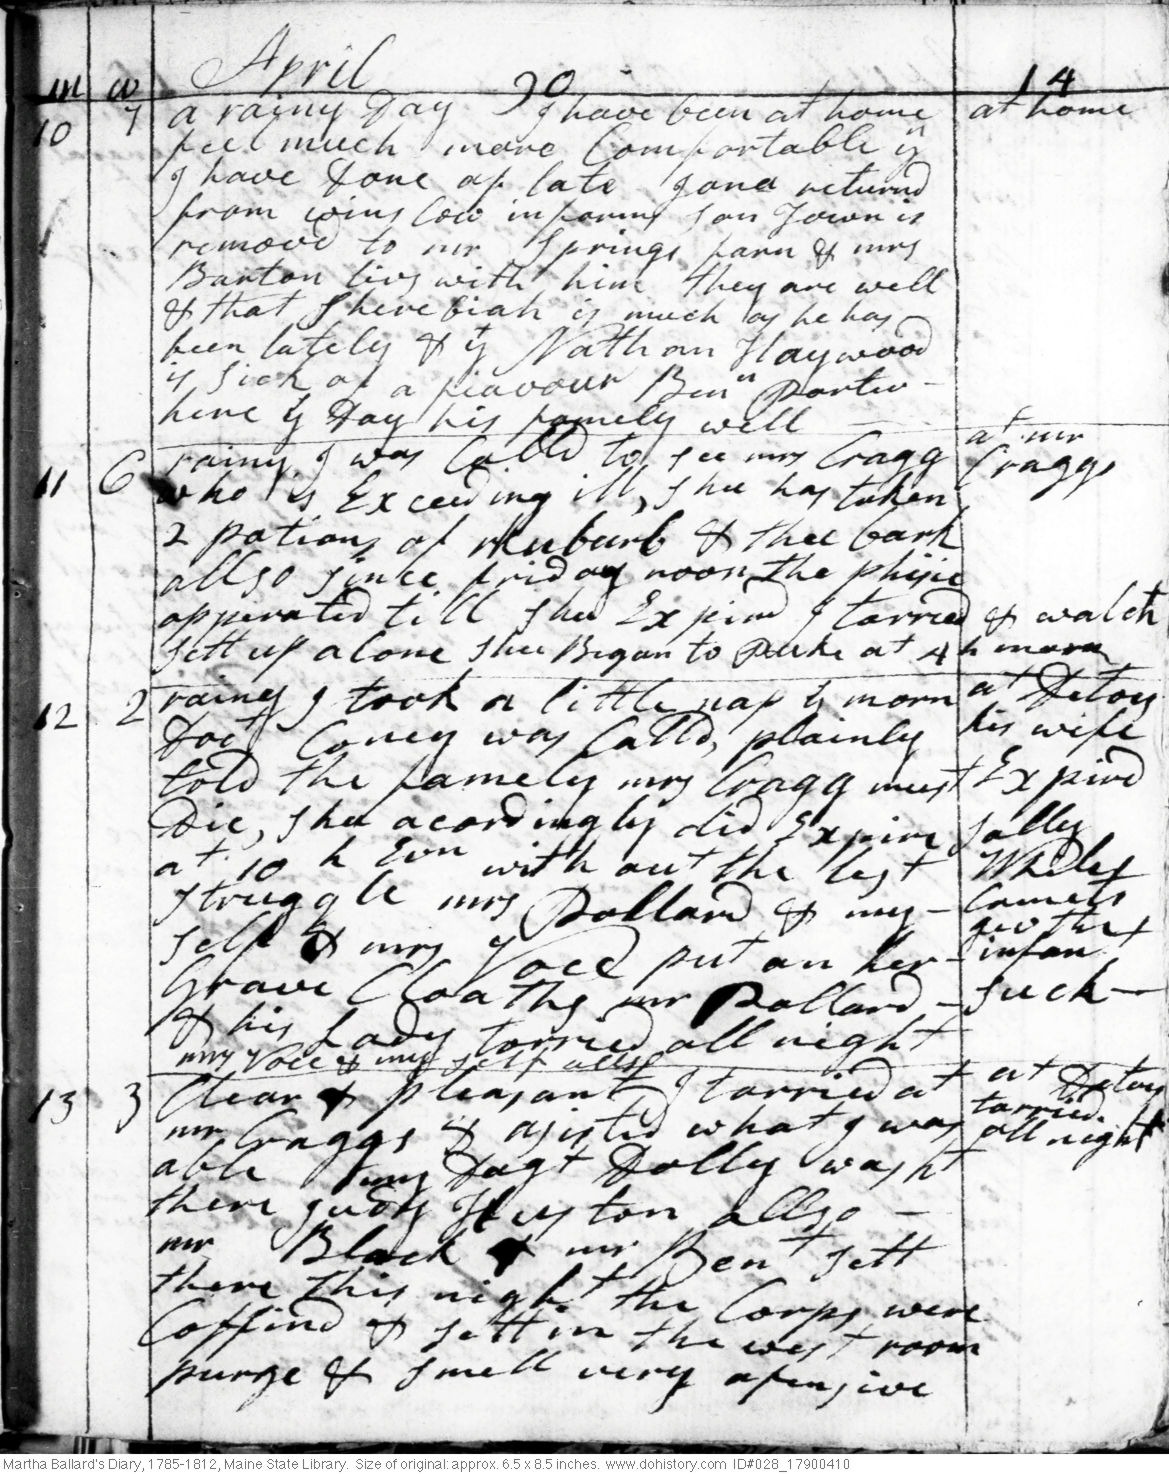 April
m w 90 14
10 7 a rainy Day I have been at home at home
feel much more Comfortable yn
I have Done of late Jona returnd
from winslow informs son Town is
removd to mr Springs farm & mrs
Barton livs with him they are well
& that Sherebiah is much as he has
been lately & yt Nathan Haywood
is sick of a feavour Benn Porter -
here ys Day his famely well
11 6 rainy. I was Calld to see mrs Cragg at mr Craggs
who is Exceeding ill, shee has taken
2 potions of rhubarb & thee bark
allso since friday noon, the phisic
opperated till shee Expird I tarried & watch
sett up alone shee Began to Puke at 4 h morn
12 2 rainy I took a little nap ys morn at Ditoes
Doct Coney was Calld, plainly his wife
told the famely mrs Cragg must Expird
Die, shee acordingly did Expire Sally
at 10 h Evn with out the lest Whiley
struggle mrs Pollard & my- Comets
self & mrs Voce put on her- givs the infant
Grave Cloaths mr Pollard - suck -
& his Lady torried all night
mrs Voce & my self allso
13 3 Clear & pleasant I tarried at at Ditoes
mr Craggs & asisted what I was tarried.
able my Dagt Dolly was at all night
there Judy Huston allso -
mr Black & mr Bent sett
there this night the Corps were
Coffind & sett in the west room
purge & smell very ofensive
Martha Ballard's Diary, 1785-1812, Maine State Library. Size of original: approx. 6.5 x 8.5 inches. www.dohistory.com ID#028_17900410